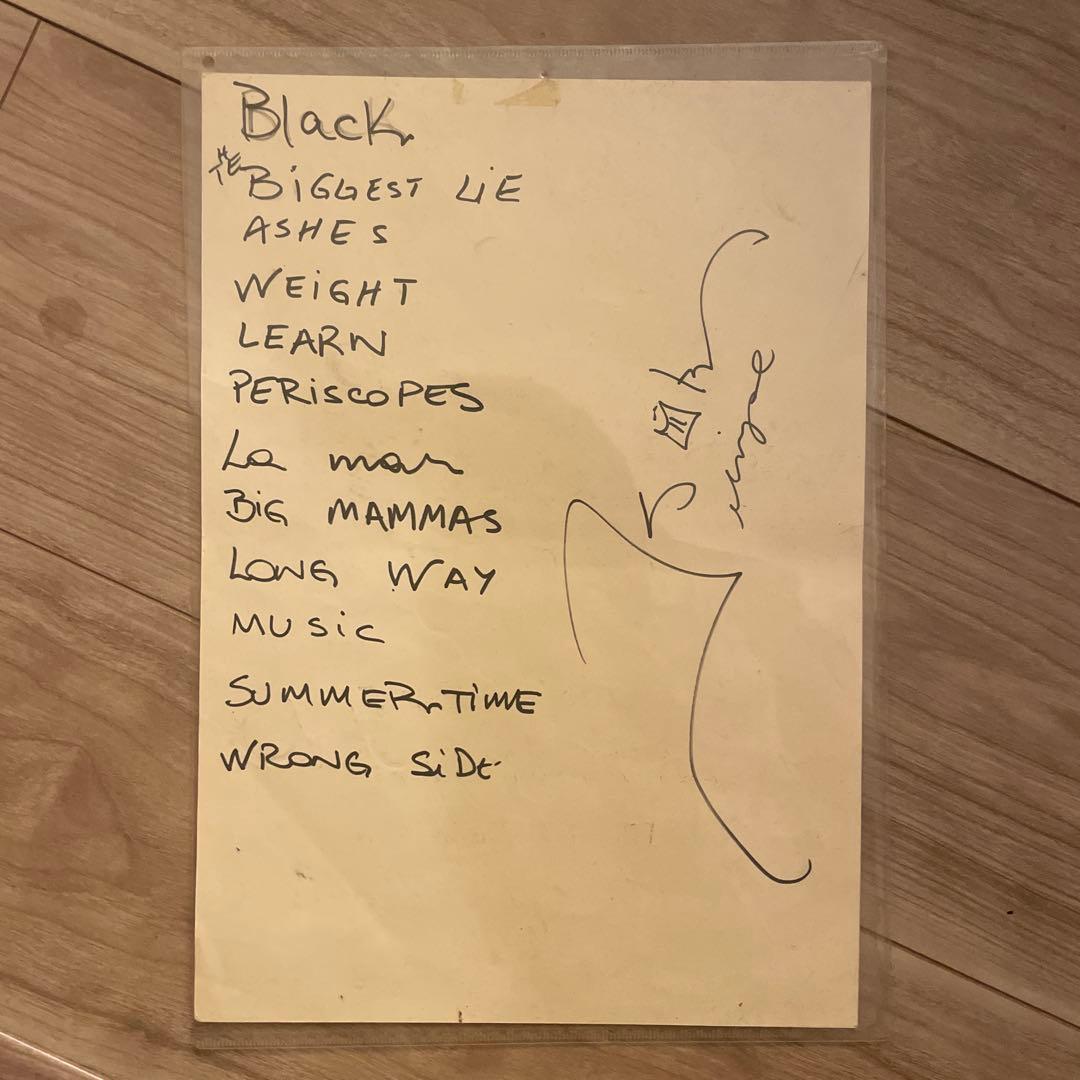 Black
THE BiGGEST LiE
ASHES
WEiGHT
LEARN
PERiSCOPES
La mar
BiG MAMMAS
LONG WAY
MUSiC
SUMMERTiME
WRONG SiDE